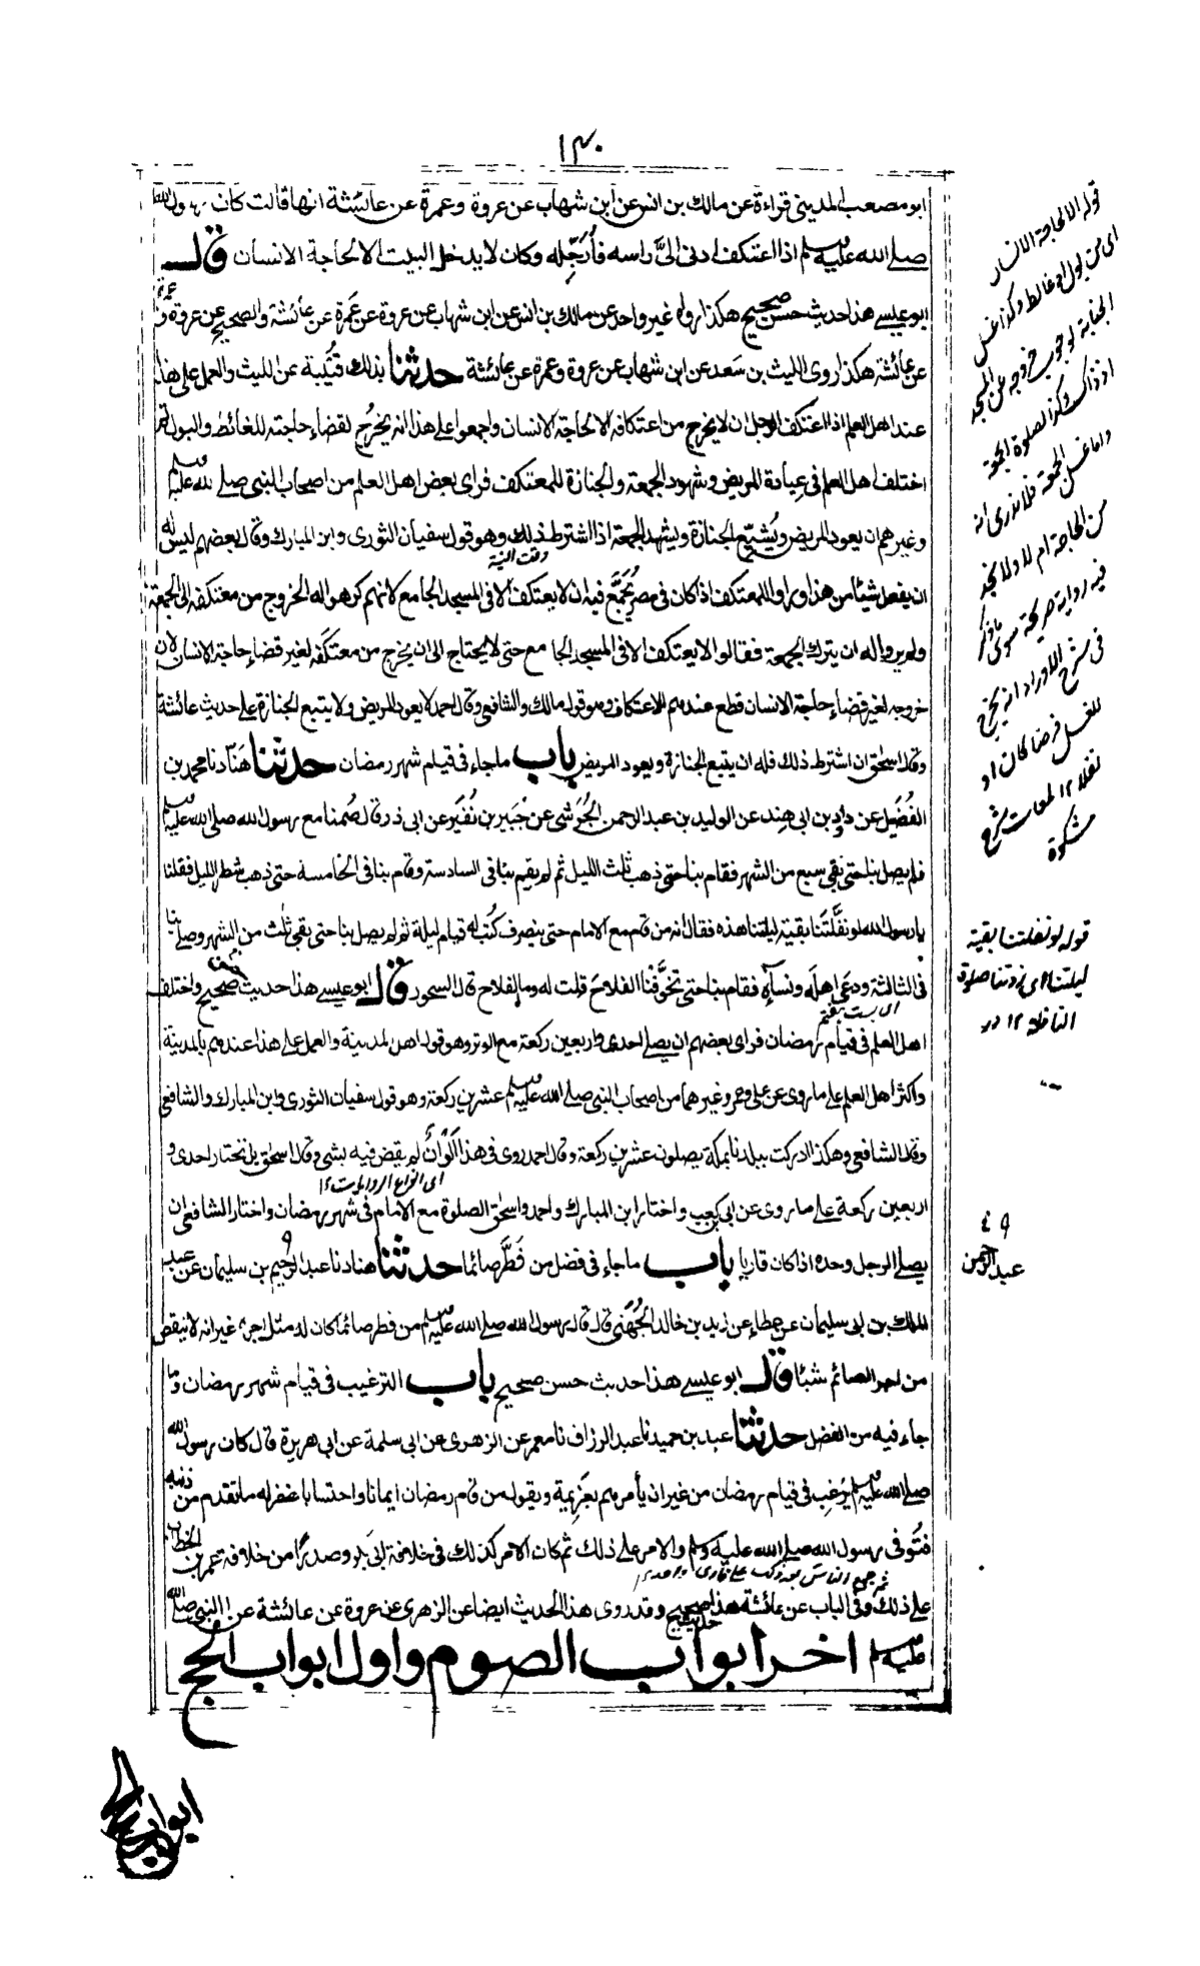 ١٣٠
ابو مصعب المديني قراءة عن مالك بن انس عن ابن شهاب عن عروة وعمرة عن عائشة انها قالت كان رسول الله
صلى الله عليه وسلم اذا اعتكف ادنى اليَّ راسه فأُرَجِّله وكان لا يدخل البيت الا لحاجة الانسان قال
ابو عيسى هذا حديث حسن صحيح هكذا رواه غير واحد عن مالك بن انس عن ابن شهاب عن عروة عن عَمرَة عن عائشة والصحيح عن عروة وعمرة
عن عائشة هكذا روى الليث بن سَعد عن ابن شهاب عن عروة وعمرة عن عائشة حدثنا بذلك قُتَيبة عن الليث والعمل على هذا
عند اهل العلم اذا اعتكف الرجل ان لا يخرج من اعتكافه الا لحاجة الانسان واجمعوا على هذا انه يخرُج لقضاء حاجته للغائط والبول ثم
اختلف اهل العلم في عيادة المريض وشهود الجمعة والجنازة للمعتكف فراى بعض اهل العلم من اصحاب النبي صلى الله عليه وسلم
وغيرهم ان يعود المريض ويُشيّع الجنازة ويشهد الجمعة اذا اشترط ذلك وهو قول سفيان الثورى وابن المبارك وقال بعضهم ليس له
وقت النية
ان يفعل شيئا من هذا وراوا للمعتكف اذا كان في مصر يُجَمَّع فيه ان لا يعتكف الا في المسجد الجامع لانهم كرهوا له الخروج من معتكفه الى الجمعة
ولم يروا له ان يترك الجمعة فقالوا لا يعتكف الا في المسجد الجامع حتى لا يحتاج الى ان يخرج من معتكَفه لغير قضاء حاجة الانسان لان
خروجه لغير قضاء حاجة الانسان قطع عندهم للاعتكاف وهو قول مالك والشافعي وقال احمد لا يعود المريض ولا يتبع الجنازة على حديث عائشة
وقال اسحق ان اشترط ذلك فله ان يتبع الجنازة ويعود المريض باب ما جاء في قيام شهر رمضان حدثنا هَنّاد نا محمد بن
الفُضَيل عن داود بن ابي هِند عن الوليد بن عبد الرحمن الجُرَشي عن جُبَير بن نُفَير عن ابي ذر قال صُمنا مع رسول الله صلى الله عليه وسلم
فلم يصل بنا حتى بقي سبع من الشهر فقام بنا حتى ذهب ثلث الليل ثم لم يقم بنا في السادسة وقام بنا في الخامسة حتى ذهب شطر الليل فقلنا
يا رسول الله لو نفَّلتَنا بقية ليلتنا هذه فقال انه من قام مع الامام حتى ينصرف كُتب له قيام ليلة ثم لم يصل بنا حتى بقي ثلث من الشهر وصلى بنا
في الثالثة ودعى اهلَه ونساءَه فقام بنا حتى تخوَّفنا الفلاحَ قلت له وما الفلاح قال السحور قال ابو عيسى هذا حديث حسن صحيح واختلف
اى بست هفتم
اهل العلم في قيام رمضان فراى بعضهم ان يصلي احدى واربعين ركعة مع الوتر وهو قول اهل المدينة والعمل على هذا عندهم بالمدينة
واكثر اهل العلم على ما روى عن علي وعمر وغيرهما من اصحاب النبي صلى الله عليه وسلم عشرين ركعة وهو قول سفيان الثورى وابن المبارك والشافعي
وقال الشافعي وهكذا ادركت ببلدنا بمكة يصلون عشرين ركعة وقال احمد روى في هذا الوانٌ لم يقض فيه بشئ وقال اسحق بل نختار احدى و
اى انواع الروايات ١٢
اربعين ركعة على ما روى عن ابي بن كعب واختار ابن المبارك واحمد واسحق الصلوة مع الامام في شهر رمضان واختار الشافعي ان
يصلي الرجل وحده اذا كان قاريا باب ما جاء في فضل من فَطَّر صائما حدثنا هناد نا عبد الرحيم بن سليمان عن عبد
الملك بن ابي سليمان عن عطاء عن زيد بن خالد الجُهَني قال قال رسول الله صلى الله عليه وسلم من فطر صائما كان له مثل اجره غير انه لا ينقص
من اجر الصائم شيئا قال ابو عيسى هذا حديث حسن صحيح باب الترغيب في قيام شهر رمضان وما
جاء فيه من الفضل حدثنا عبد بن حميد نا عبد الرزاق نا معمر عن الزهرى عن ابي سلمة عن ابي هريرة قال كان رسول الله
صلى الله عليه وسلم يُرَغِّب في قيام رمضان من غير ان يأمرهم بعَزيمة ويقول من قام رمضان ايمانا واحتسابا غفر له ما تقدم من ذنبه
فتُوفي رسول الله صلى الله عليه وسلم والامر على ذلك ثم كان الامر كذلك في خلافة ابي بكر وصدرًا من خلافة عمر بن الخطاب
ثم جمع الناس
على ذلك وفي الباب عن عائشة هذا حديث صحيح وقد روى هذا الحديث ايضا عن الزهرى عن عروة عن عائشة عن النبي صلى الله
عليه وسلم اخر ابواب الصوم واول ابواب الحج
ابواب الحج
قوله الا لحاجة الانسان
اى من بول او غائط وكذا غسل
الجنابة لوجوب خروجه عن المسجد
اذ ذاك وكذا لصلوة الجمعة
واما غسل الجمعة فلا ندرى انه
من الحاجة ام لا ولا نجد
فيه رواية صريحة سوى ما ذكر
في شرح الاوراد انه يخرج
للغسل فرضا كان او
نفلا ١٢ لمعات شرح
مشكوة
قوله لو نفلتنا بقية
ليلتنا اى زدتنا صلوة
النافلة ١٢ در
عبد الرحمن